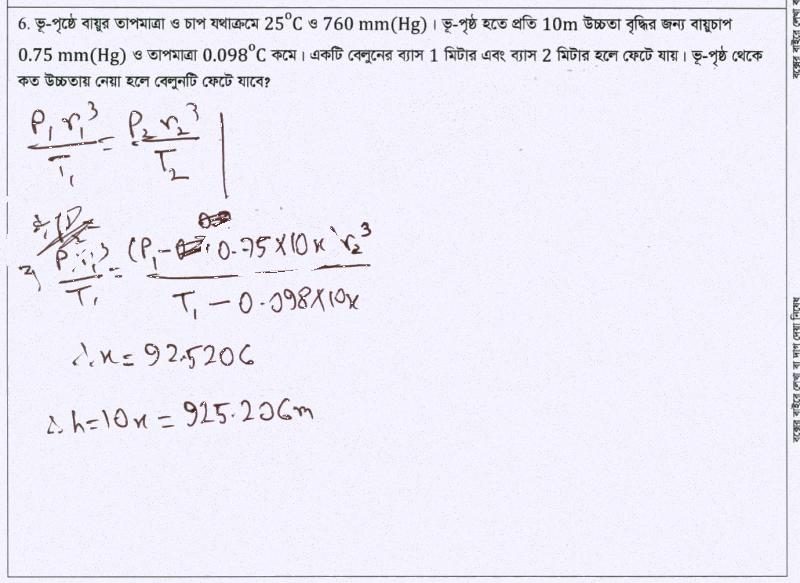 6. ভূ-পৃষ্ঠে বায়ুর তাপমাত্রা ও চাপ যথাক্রমে 25°C ও 760 mm(Hg)। ভূ-পৃষ্ঠ হতে প্রতি 10m উচ্চতা বৃদ্ধির জন্য বায়ুচাপ
0.75 mm(Hg) ও তাপমাত্রা 0.098°C কমে। একটি বেলুনের ব্যাস 1 মিটার এবং ব্যাস 2 মিটার হলে ফেটে যায়। ভূ-পৃষ্ঠ থেকে
কত উচ্চতায় নেয়া হলে বেলুনটি ফেটে যাবে?
P₁r₁³/T₁ = P₂r₂³/T₂
P₁r₁³/T₁ = (P₁ - 0.75×10x r₂³/T₁ - 0.098×10x
∴ x = 92.5206
∴ h = 10x = 925.206m
বক্সের বাইরে লেখা বা দাগ দেয়া নিষেধ